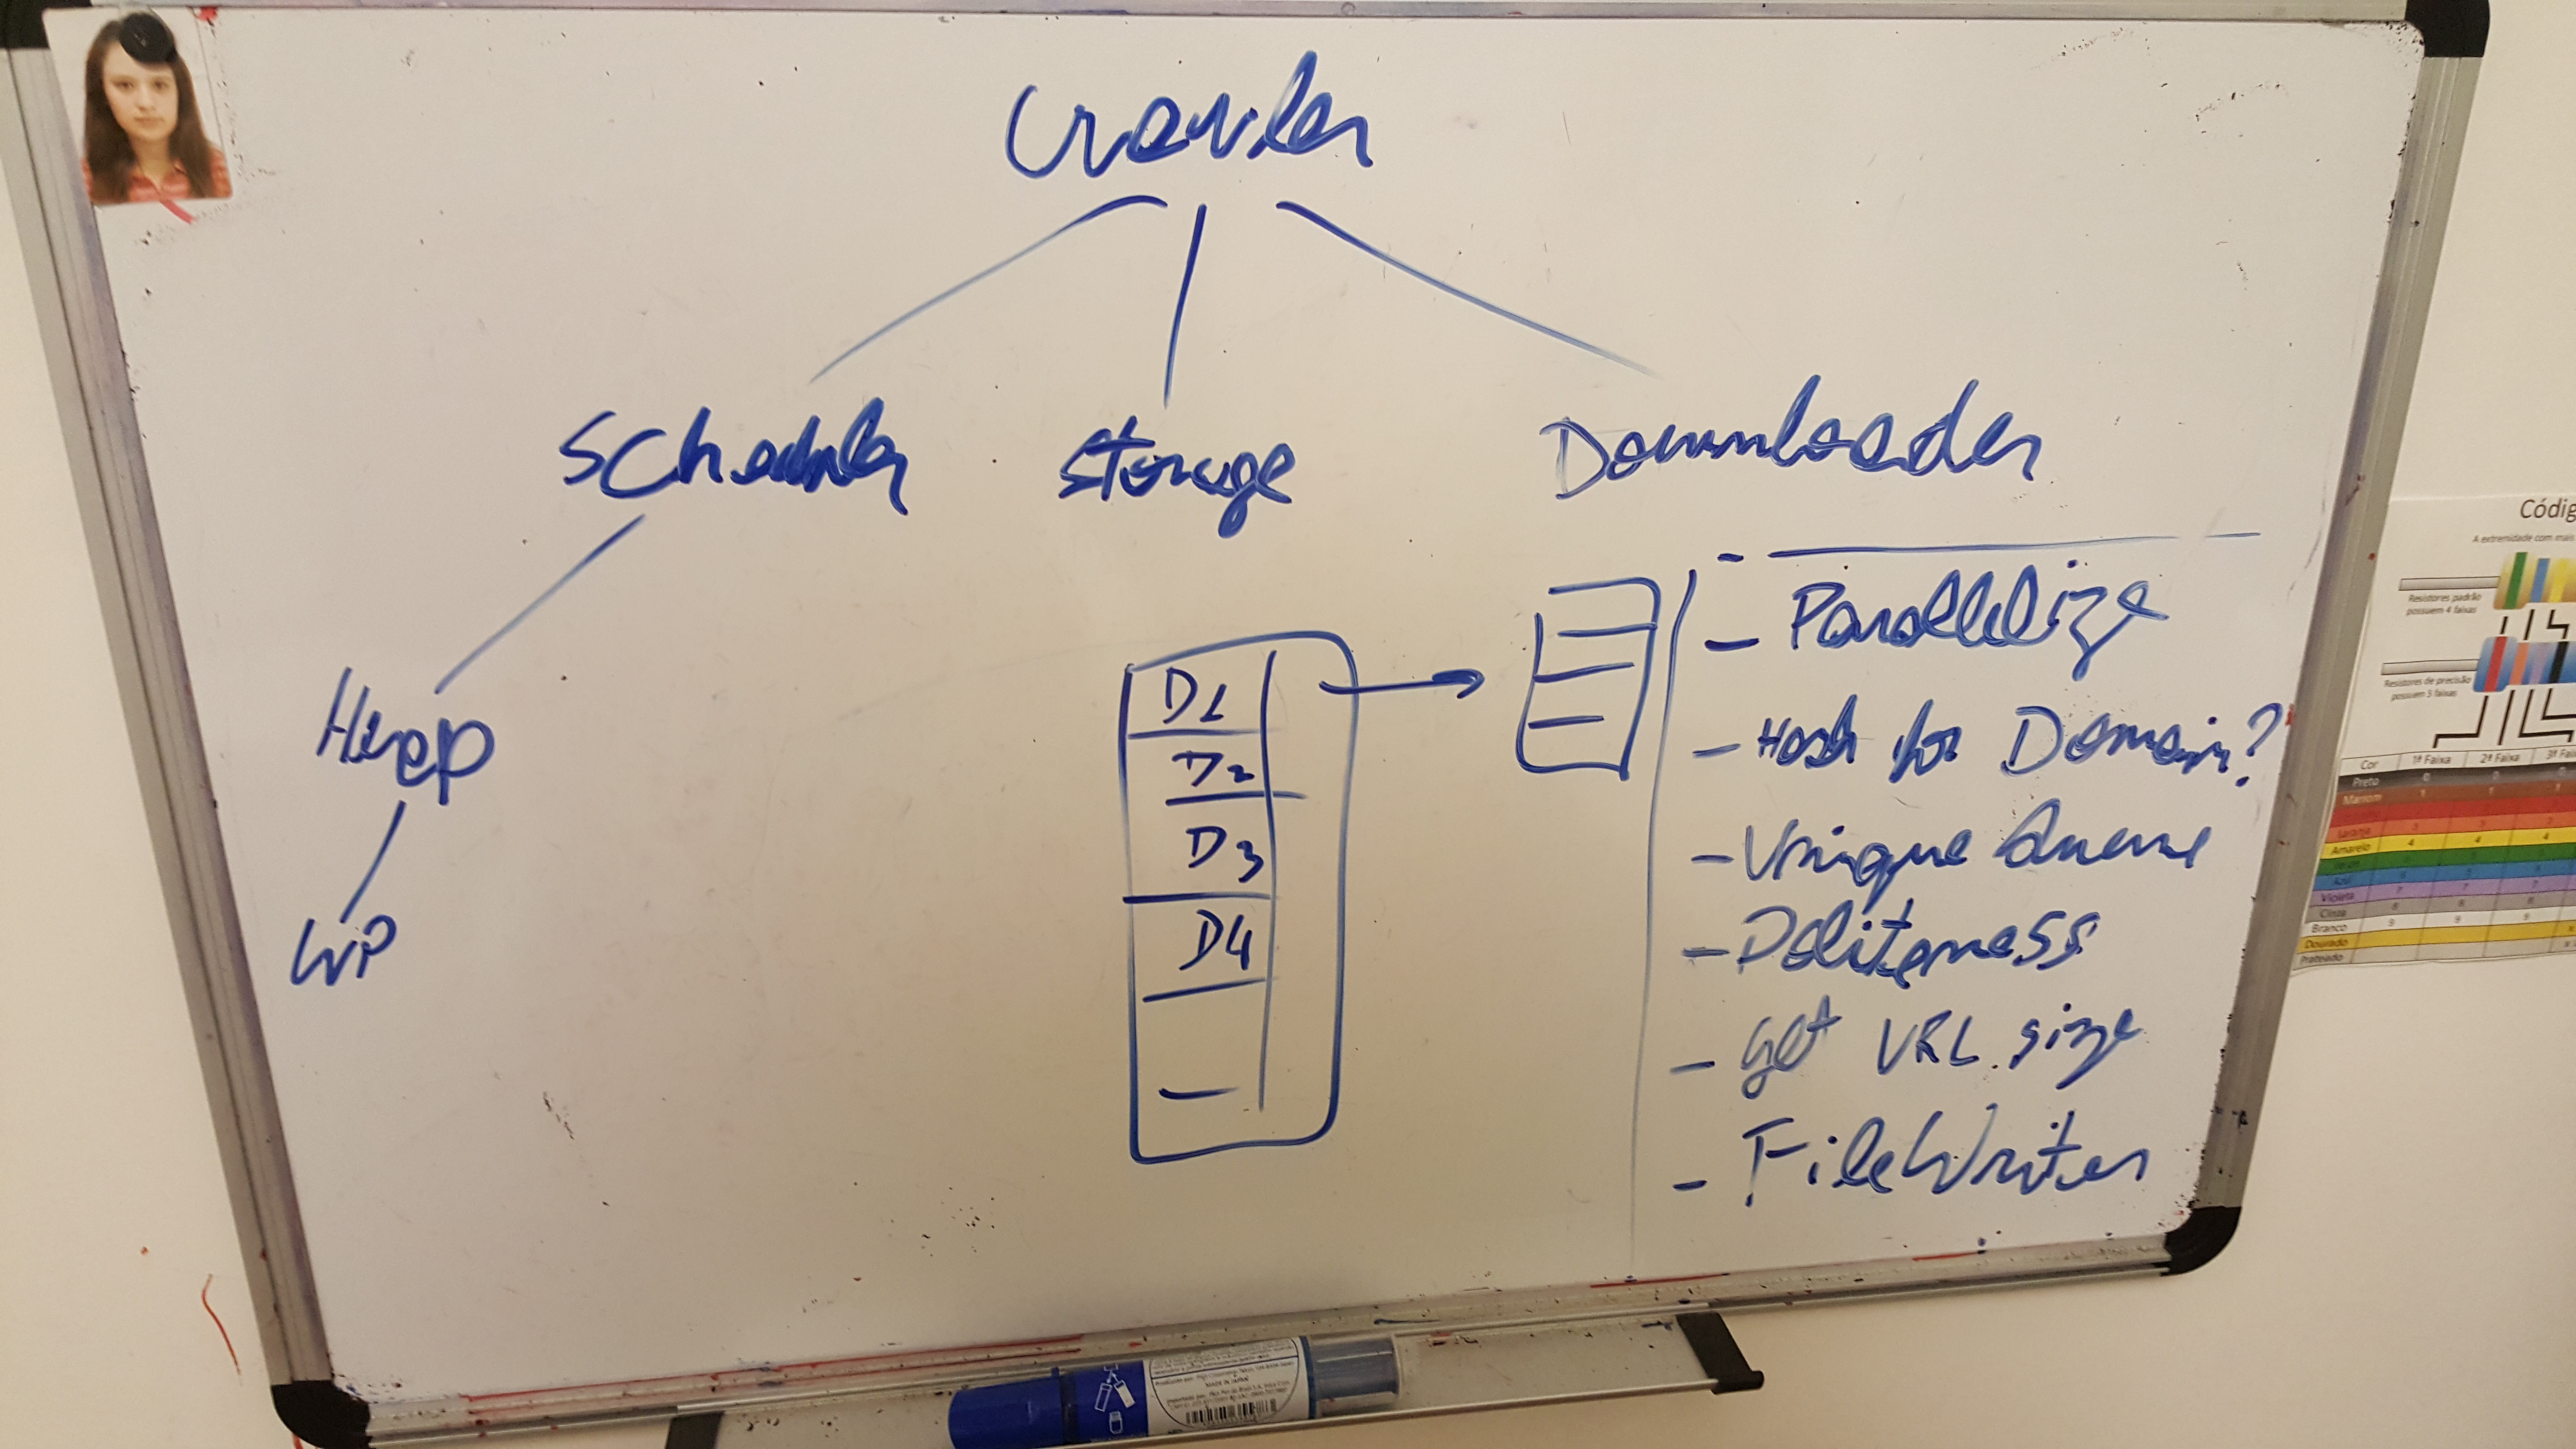 Crawler
Scheduler Storage Downloader
Heap
WP
D1
D2
D3
D4
-
- Parallelize
- Hash for Domain?
- Unique Queue
- Politeness
- get URL size
- FileWriter
Códig
A extremidade com mais
Resistores padrão
possuem 4 faixas
Resistores de precisão
possuem 5 faixas
Cor 1ª Faixa 2ª Faixa 3ª Faix
Preto 0 0
Marrom 1 1
Laranja 3 3
Amarelo 4 4 4
Azul 6
Violeta 7 7 7
Cinza 8 8 8
Branco 9 9 9
Dourado
Prateado
MADE IN JAPAN